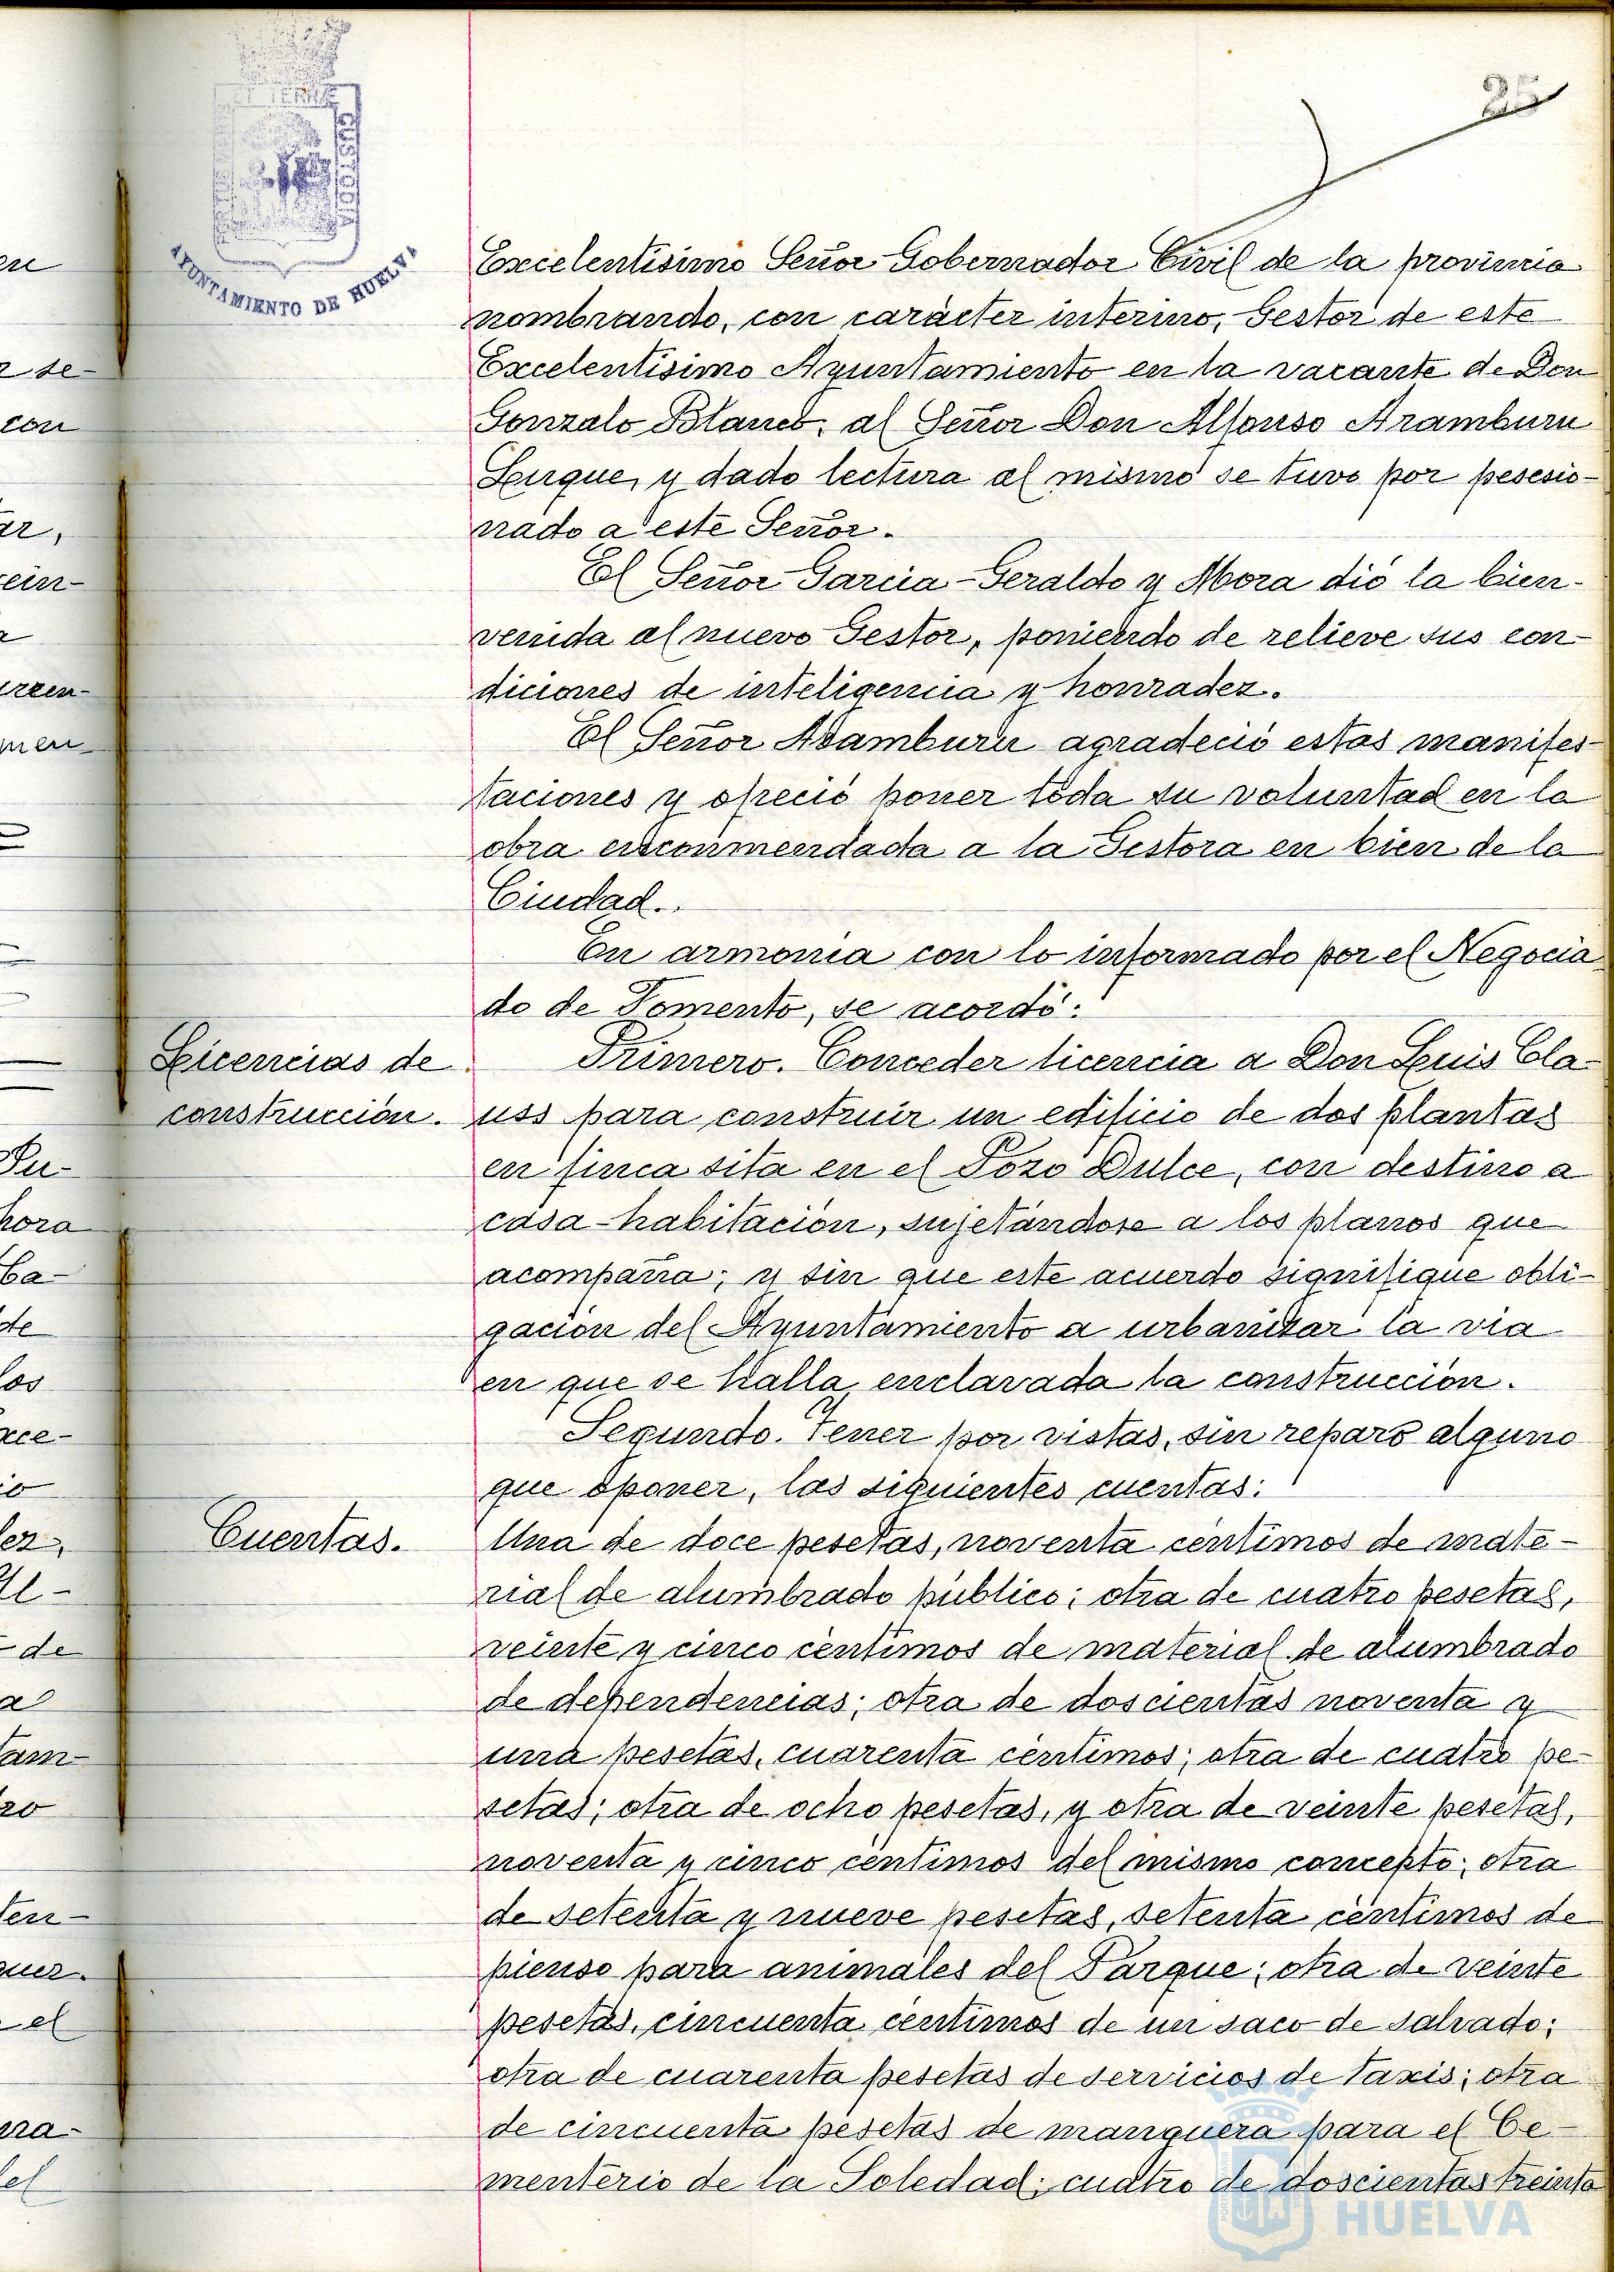 25
ET TERRÆ
CUSTODIA
AYUNTAMIENTO DE HUELVA
Excelentísimo Señor Gobernador Civil de la provincia
nombrando, con carácter interino, Gestor de este
Excelentísimo Ayuntamiento en la vacante de Don
Gonzalo Blanco, al Señor Don Alfonso Aramburu
Luque, y dado lectura al mismo se tuvo por pesesio-
nado a este Señor.
El Señor Garcia-Geraldo y Mora dió la bien-
venida al nuevo Gestor, poniendo de relieve sus con-
diciones de inteligencia y honradez.
El Señor Aramburu agradeció estas manifes-
taciones y ofreció poner toda su voluntad en la
obra enconmendada a la Gestora en bien de la
Ciudad.
En armonia con lo informado por el Negocia
do de Fomento, se acordó:
Licencias de
construcción.
Primero. Conceder licencia a Don Luis Cla-
uss para construir un edificio de dos plantas
en finca sita en el Pozo Dulce, con destino a
casa-habitación, sujetándose a los planos que
acompaña; y sin que este acuerdo signifique obli-
gación del Ayuntamiento a urbanizar la via
en que se halla enclavada la construcción.
Segundo. Tener por vistas, sin reparo alguno
que oponer, las siguientes cuentas:
Cuentas.
Una de doce pesetas, noventa céntimos de mate-
rial de alumbrado público; otra de cuatro pesetas,
veinte y cinco céntimos de material de alumbrado
de dependencias; otra de doscientas noventa y
una pesetas, cuarenta céntimos; otra de cuatro pe-
setas; otra de ocho pesetas, y otra de veinte pesetas,
noventa y cinco céntimos del mismo concepto; otra
de setenta y nueve pesetas, setenta céntimos de
pienso para animales del Parque; otra de veinte
pesetas, cincuenta céntimos de un saco de salvado;
otra de cuarenta pesetas de servicios de taxis; otra
de cincuenta pesetas de manguera para el Ce-
menterio de la Soledad; cuatro de doscientas treinta
HUELVA